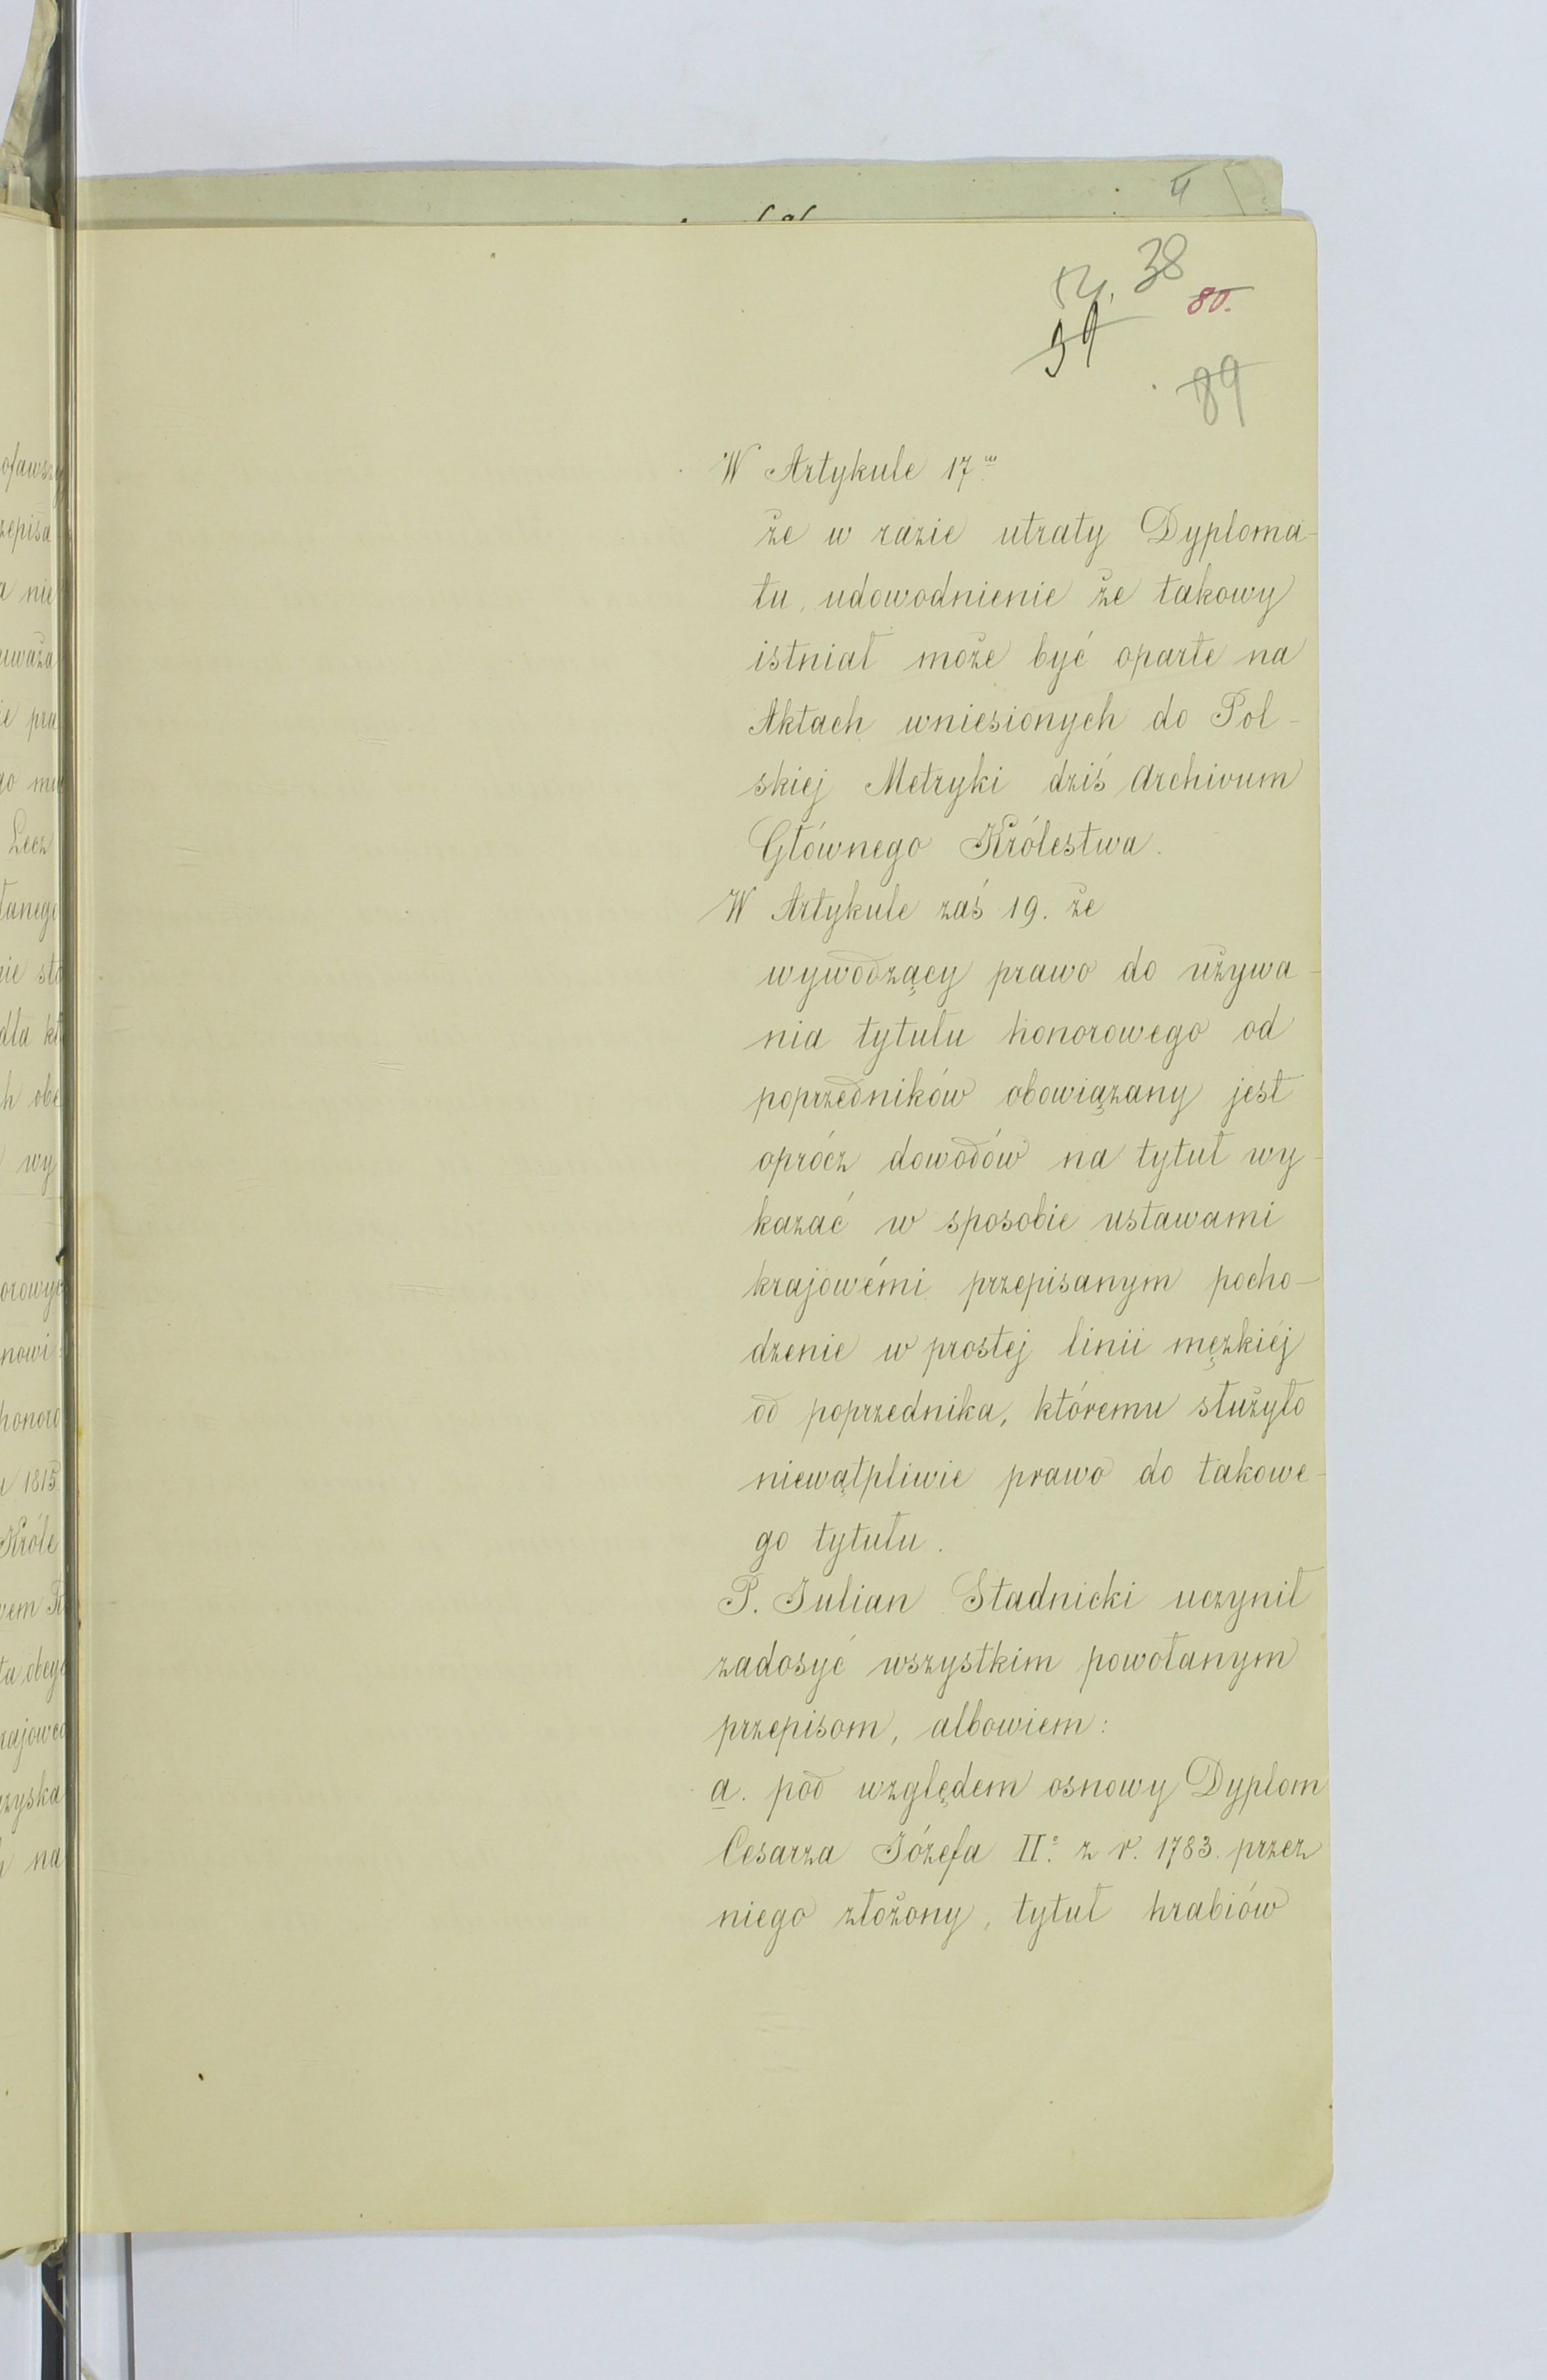 38
80.
39
89
W Artykule 17ᵐ
że w razie utraty Dyploma-
tu, udowodnienie że takowy
istniał może być oparte na
Aktach wniesionych do Pol-
skiej Metryki dziś Archivum
Głównego Królestwa.
W Artykule zaś 19. że
wywodzący prawo do używa-
nia tytułu honorowego od
poprzedników obowiązany jest
oprócz dowodów na tytuł wy-
kazać w sposobie ustawami
krajowémi przepisanym pocho-
dzenie w prostej linii męzkiéj
od poprzednika, któremu służyło
niewątpliwie prawo do takowe-
go tytułu.
P. Julian Stadnicki uczynił
zadosyć wszystkim powołanym
przepisom, albowiem:
a. pod względem osnowy Dyplom
Cesarza Józefa IIº z r. 1783. przez
niego złożony, tytuł hrabiów